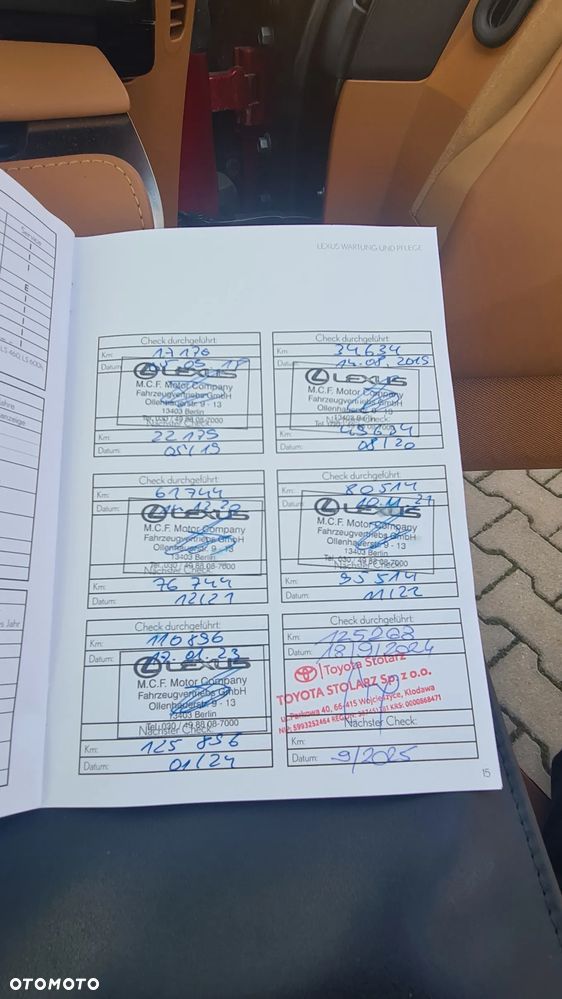 Service
E
LS 460, LS 600h
LEXUS WARTUNG UND PFLEGE
Check durchgeführt:
Km: 17170
Datum:
LEXUS
M.C.F. Motor Company
Fahrzeugvertriebs GmbH
Ollenhauerstr. 9 - 13
13403 Berlin
Tel. 030 / 49 88 08-7000
Nächster Check:
Km: 22179
Datum: 05/19
Check durchgeführt:
Km: 34634
Datum: 14.08.2019
LEXUS
M.C.F. Motor Company
Fahrzeugvertriebs GmbH
Ollenhauerstr. 9 - 13
13403 Berlin
Nächster Check:
Km: 49634
Datum: 08/20
Check durchgeführt:
Km: 61744
Datum:
LEXUS
M.C.F. Motor Company
Fahrzeugvertriebs GmbH
Ollenhauerstr. 9 - 13
13403 Berlin
Tel. 030 / 49 88 08-7000
Nächster Check:
Km: 76744
Datum: 12/21
Check durchgeführt:
Km: 80514
Datum:
LEXUS
M.C.F. Motor Company
Fahrzeugvertriebs GmbH
Ollenhauerstr. 9 - 13
13403 Berlin
Tel. 030 / 49 88 08-7000
Nächster Check:
Km: 95514
Datum: 11/22
Check durchgeführt:
Km: 110896
Datum: 17.01.23
LEXUS
M.C.F. Motor Company
Fahrzeugvertriebs GmbH
Ollenhauerstr. 9 - 13
13403 Berlin
Tel. 030 / 49 88 08-7000
Nächster Check:
Km: 125 896
Datum: 01/24
Check durchgeführt:
Km:
Datum: 18/9/2024
Toyota Stolarz
TOYOTA STOLARZ Sp. z o.o.
ul. Parkowa 40, 66-415 Wojcieszyce, Kłodawa
NIP: 5993252464 KRS: 0000868471
Nächster Check:
Km:
Datum: 9/2025
15
OTOMOTO